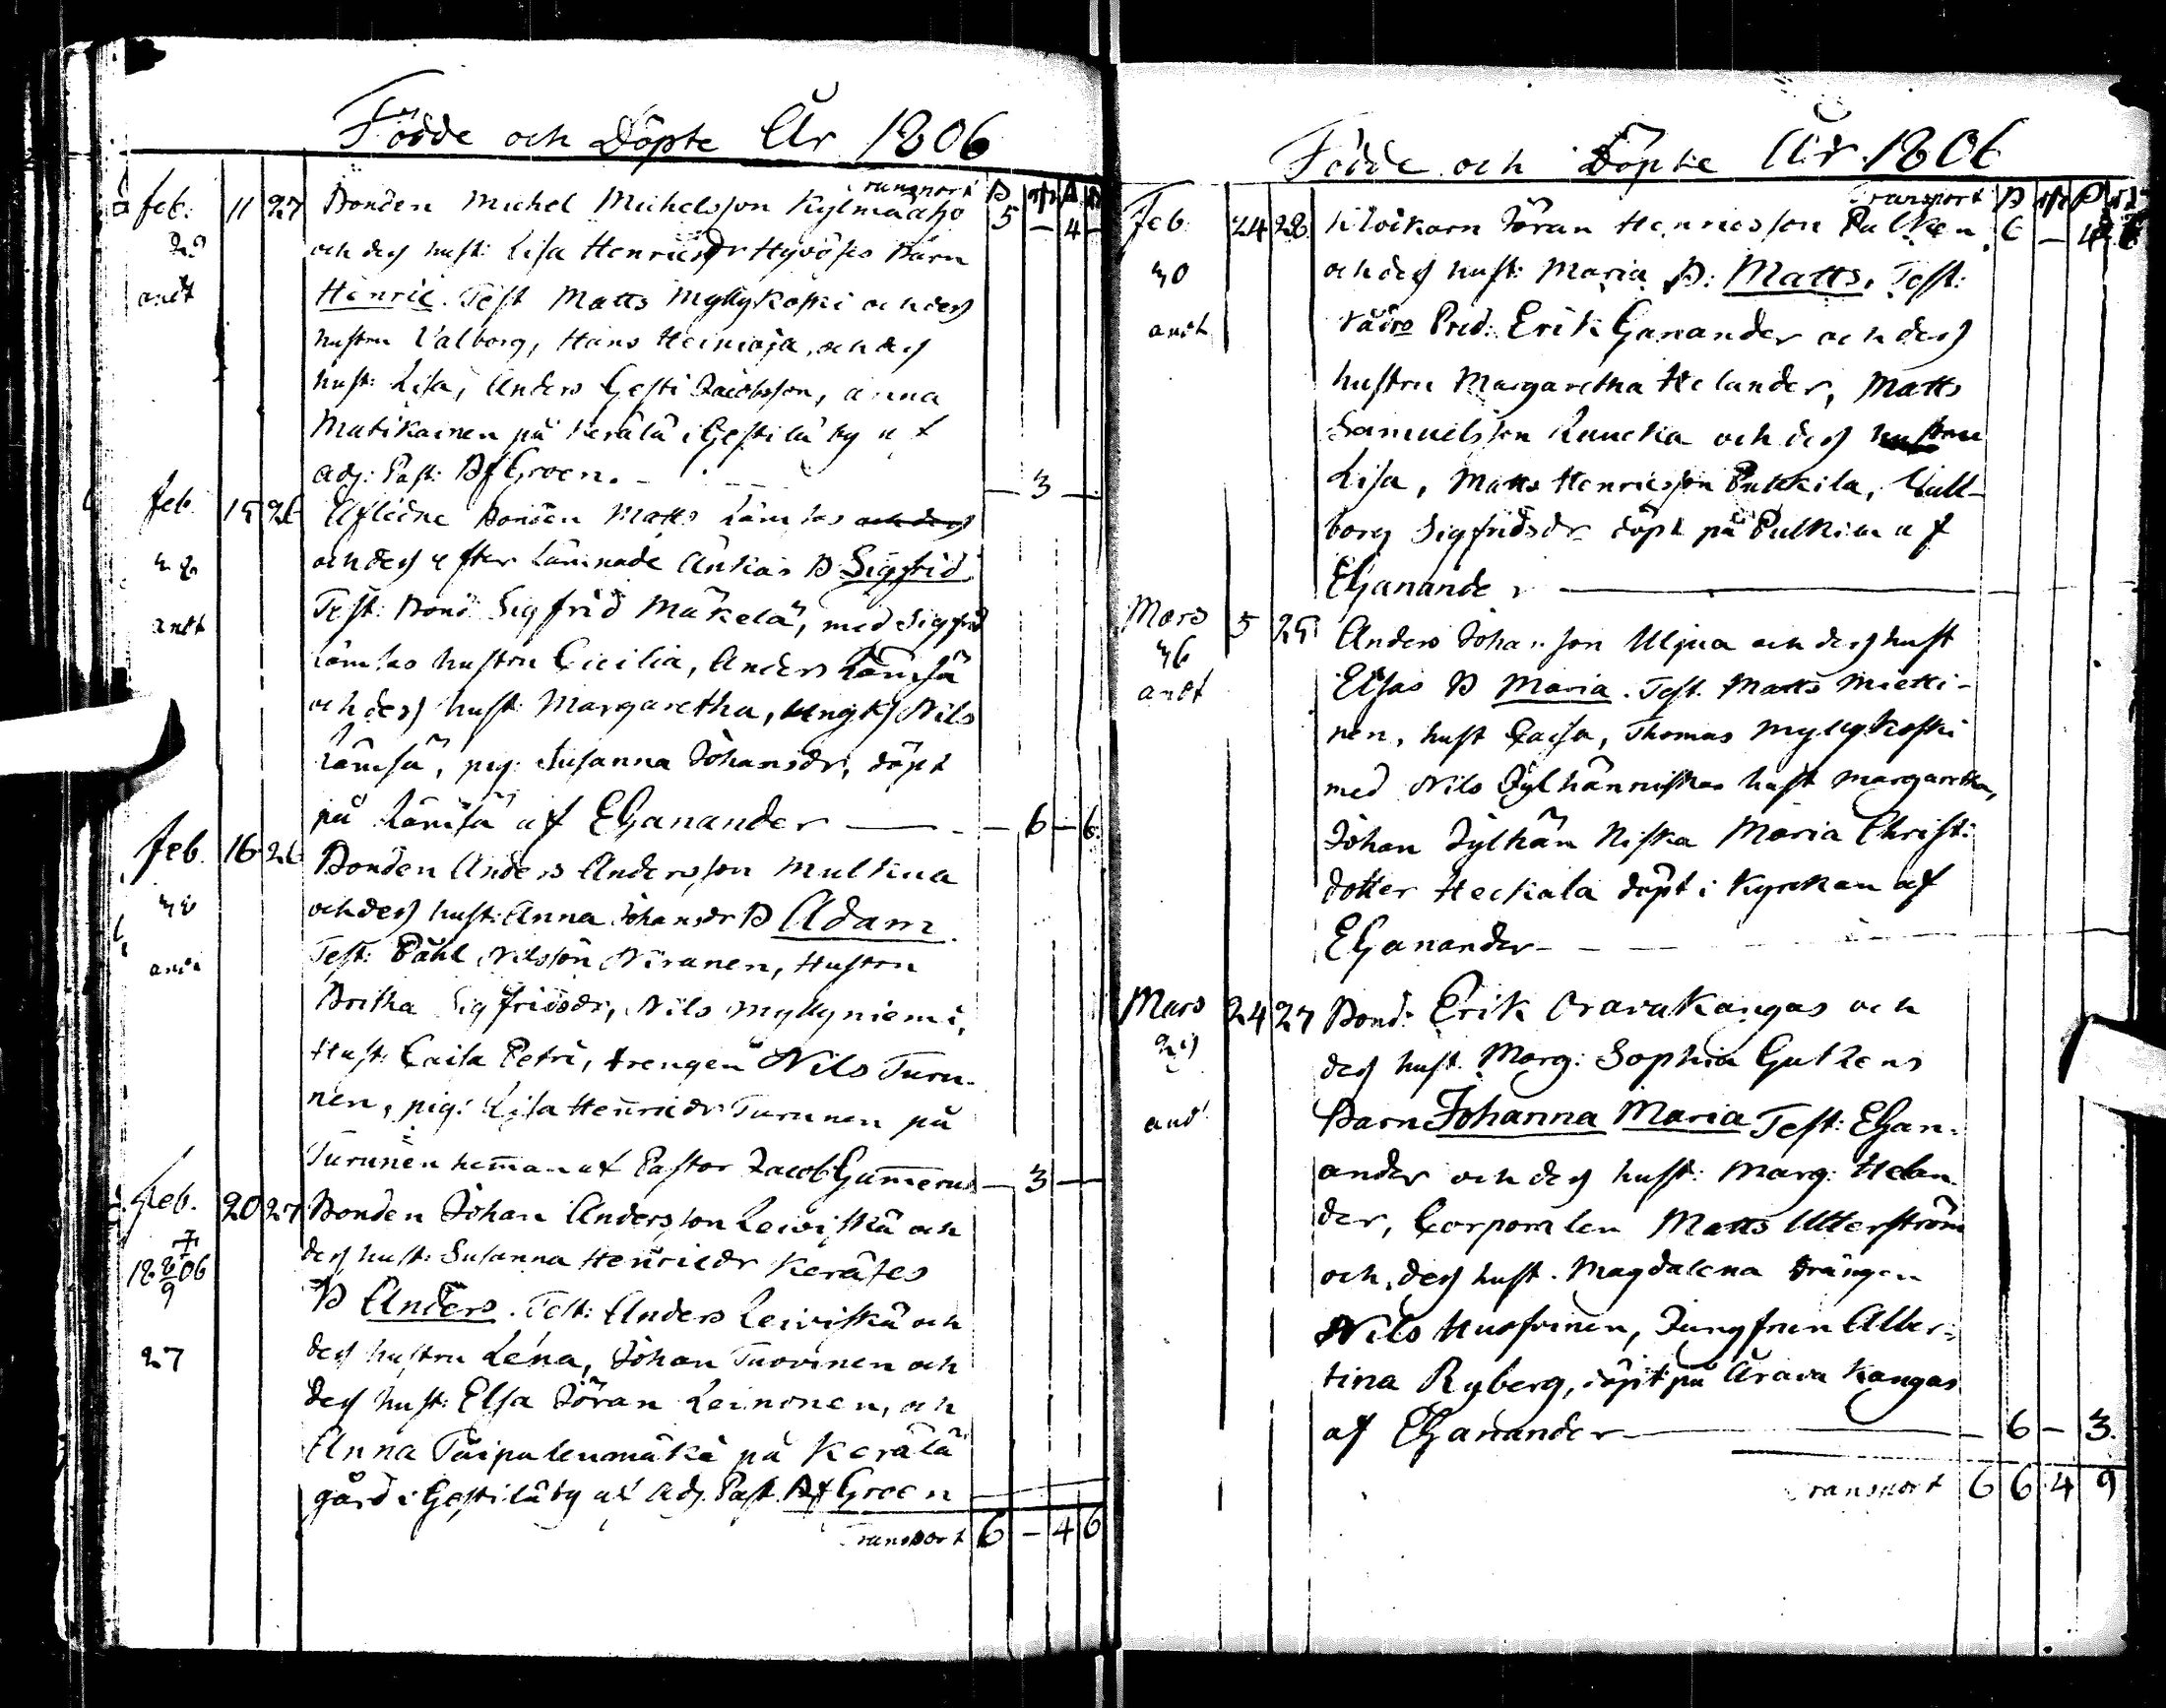 Födde och Döpte År 1806
Transport B
feb. 11 27 Bonden Michel Michelsson Kylmäaho 5 – 4 –
och dess hust: Lisa Henricsdr Hyvöses Barn
andt Henric. Test Matts Myllykoski och dess
hustru Valborg, Hans Heinioja, och dess
hust: Lisa, Anders Gesti Jacobsson, Anna
Matikainen på Kerälä i Gestilä by af
adj: Past: Groen. – 3 –
feb 15 26 Afledne Bonden Matts Lämsas
och dess efterlämnade Änkas B Sigfrid
andt Test: Bond Sigfrid Mäkelä, med Sigfrid
Lämsas hustru Cicilia, Anders Lämsä
och dess hust Margaretha, ungk Nils
Lämsä, pig: Susanna Johansdr, döpt
på Lämsä af EGanander – 6 – 6
feb. 16 26 Bonden Anders Andersson Mulkua
och dess hust: Anna Johansdr B Adam.
Test: Påhl Nilsson Niranen, Hustru
Britha Sigfridsdr, Nils Myllyniemi,
Hust: Caisa Petri, drengen Nils Turu-
nen, pig: Lisa Henricdr Turunen på
Turunen hemman af Pastor Jacob Gummerus – 3 –
Feb. 20 27 Bonden Johan Andersson Leiviskä och
dess hust: Susanna Henricdr Keräses
18 8/9 06
B Anders. Test: Anders Leiviskä och
27 dess hustru Lena, Johan Tuovinen och
dess hust: Elsa Jöran Leinonen, och
Anna Taipalenmäki på Kerälä
gård i Gestilä by af adj. Past. Groen
Transport 6 – 4 6
Födde och Döpte År 1806
Transport B
Feb. 24 28 Jöran Henricsson Pulkken 6 – 4 6
30 och dess hust: Maria B: Matts. Test:
andt Pred: Erik Ganander och dess
hustru Margaretha Helander, Matts
Samuelsson Laucka och dess hustru
Lisa, Matts Henricsson Pulkkila, Vall-
borg Sigfridsdr döpt på Pulkila af
EGanander
Mars 5 25 Anders Johansson Uljua och dess hust
36 Elsas B Maria. Test. Matts Mietti-
andt nen, hust Caisa, Thomas Myllykoski
med Nils Jylhänniskas hust Margaretha,
Johan Jylhän Niska Maria Christ:
dotter Heckala döpt i Kyrckan af
EGanander
Mars 24 27 Bond: Erik Oravakangas och
dess hust. Marg: Sophia Gutzens
and Barn Johanna Maria Test: EGan-
ander och dess hust: Marg: Helan-
der, Corporalen Matts Utterström
och dess hust. Magdalena drängen
Nils Huofvinen, Jungfrun Alber-
tina Ryberg, döpt på Arava Kangas
af EGanander – 6 – 3.
Transport 6 6 4 9